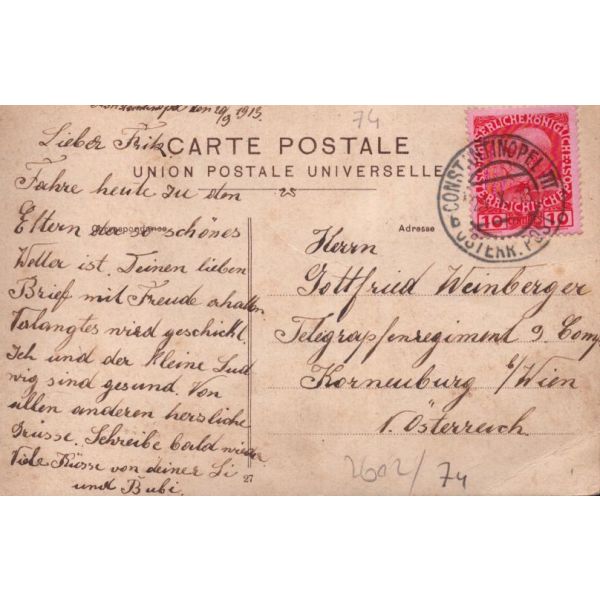 Konstantinopel den 20/9 1913.
74
Lieber Fritz.
CARTE POSTALE
UNION POSTALE UNIVERSELLE
25
Fahre heute zu den
Eltern da so schönes
Correspondance
Adresse
Wetter ist. Deinen lieben
Brief mit Freude erhalten
Valangtes wird geschickt.
Ich und der kleine Lud
wig sind gesund. Von
allen anderen hersliche
Grüsse. Schreibe bald wieder
Viele Küsse von deiner Li
und Bubi.
27
KAISERLICHE KÖNIGLICHE
ÖSTERREICHISCHE POST
10 10
CONSTANTINOPEL III
ÖSTERR. POST
Herrn
Gottfried Weinberger
Telegrapfenregiment 9 Comp
Korneuburg b/Wien
N. Österreich
2602/74